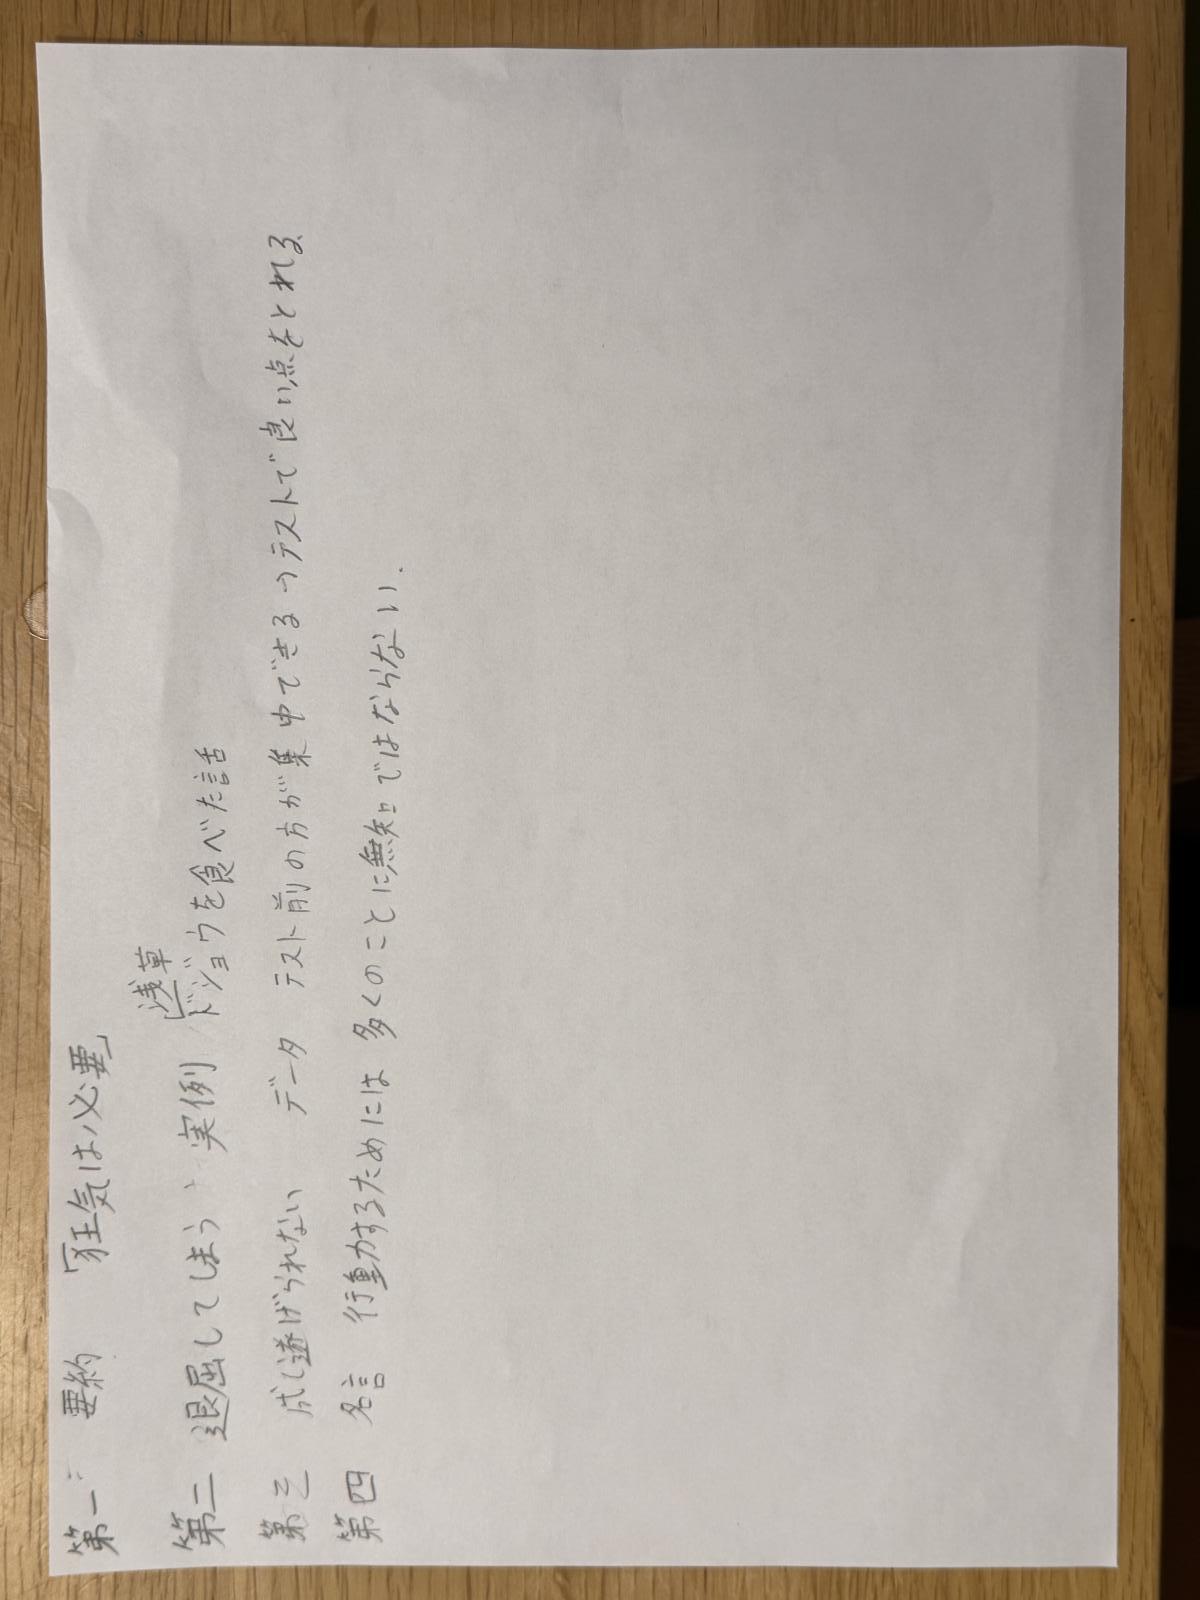 第一 要約 「狂気は必要」
浅草
第二 退屈してしまう、実例 ドジョウを食べた話
第三 成し遂げられない データ テスト前の方が集中できる→テストで良い点をとれる
第四 名言 行動するためには多くのことに無知ではならない.